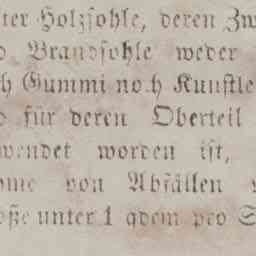 ter Holzsohle, deren Zw
d Brandsohle weder
h Gummi noch Kunstle
d für deren Oberteil
wendet worden ist,
me von Abfällen
oße unter 1 qdem pro S